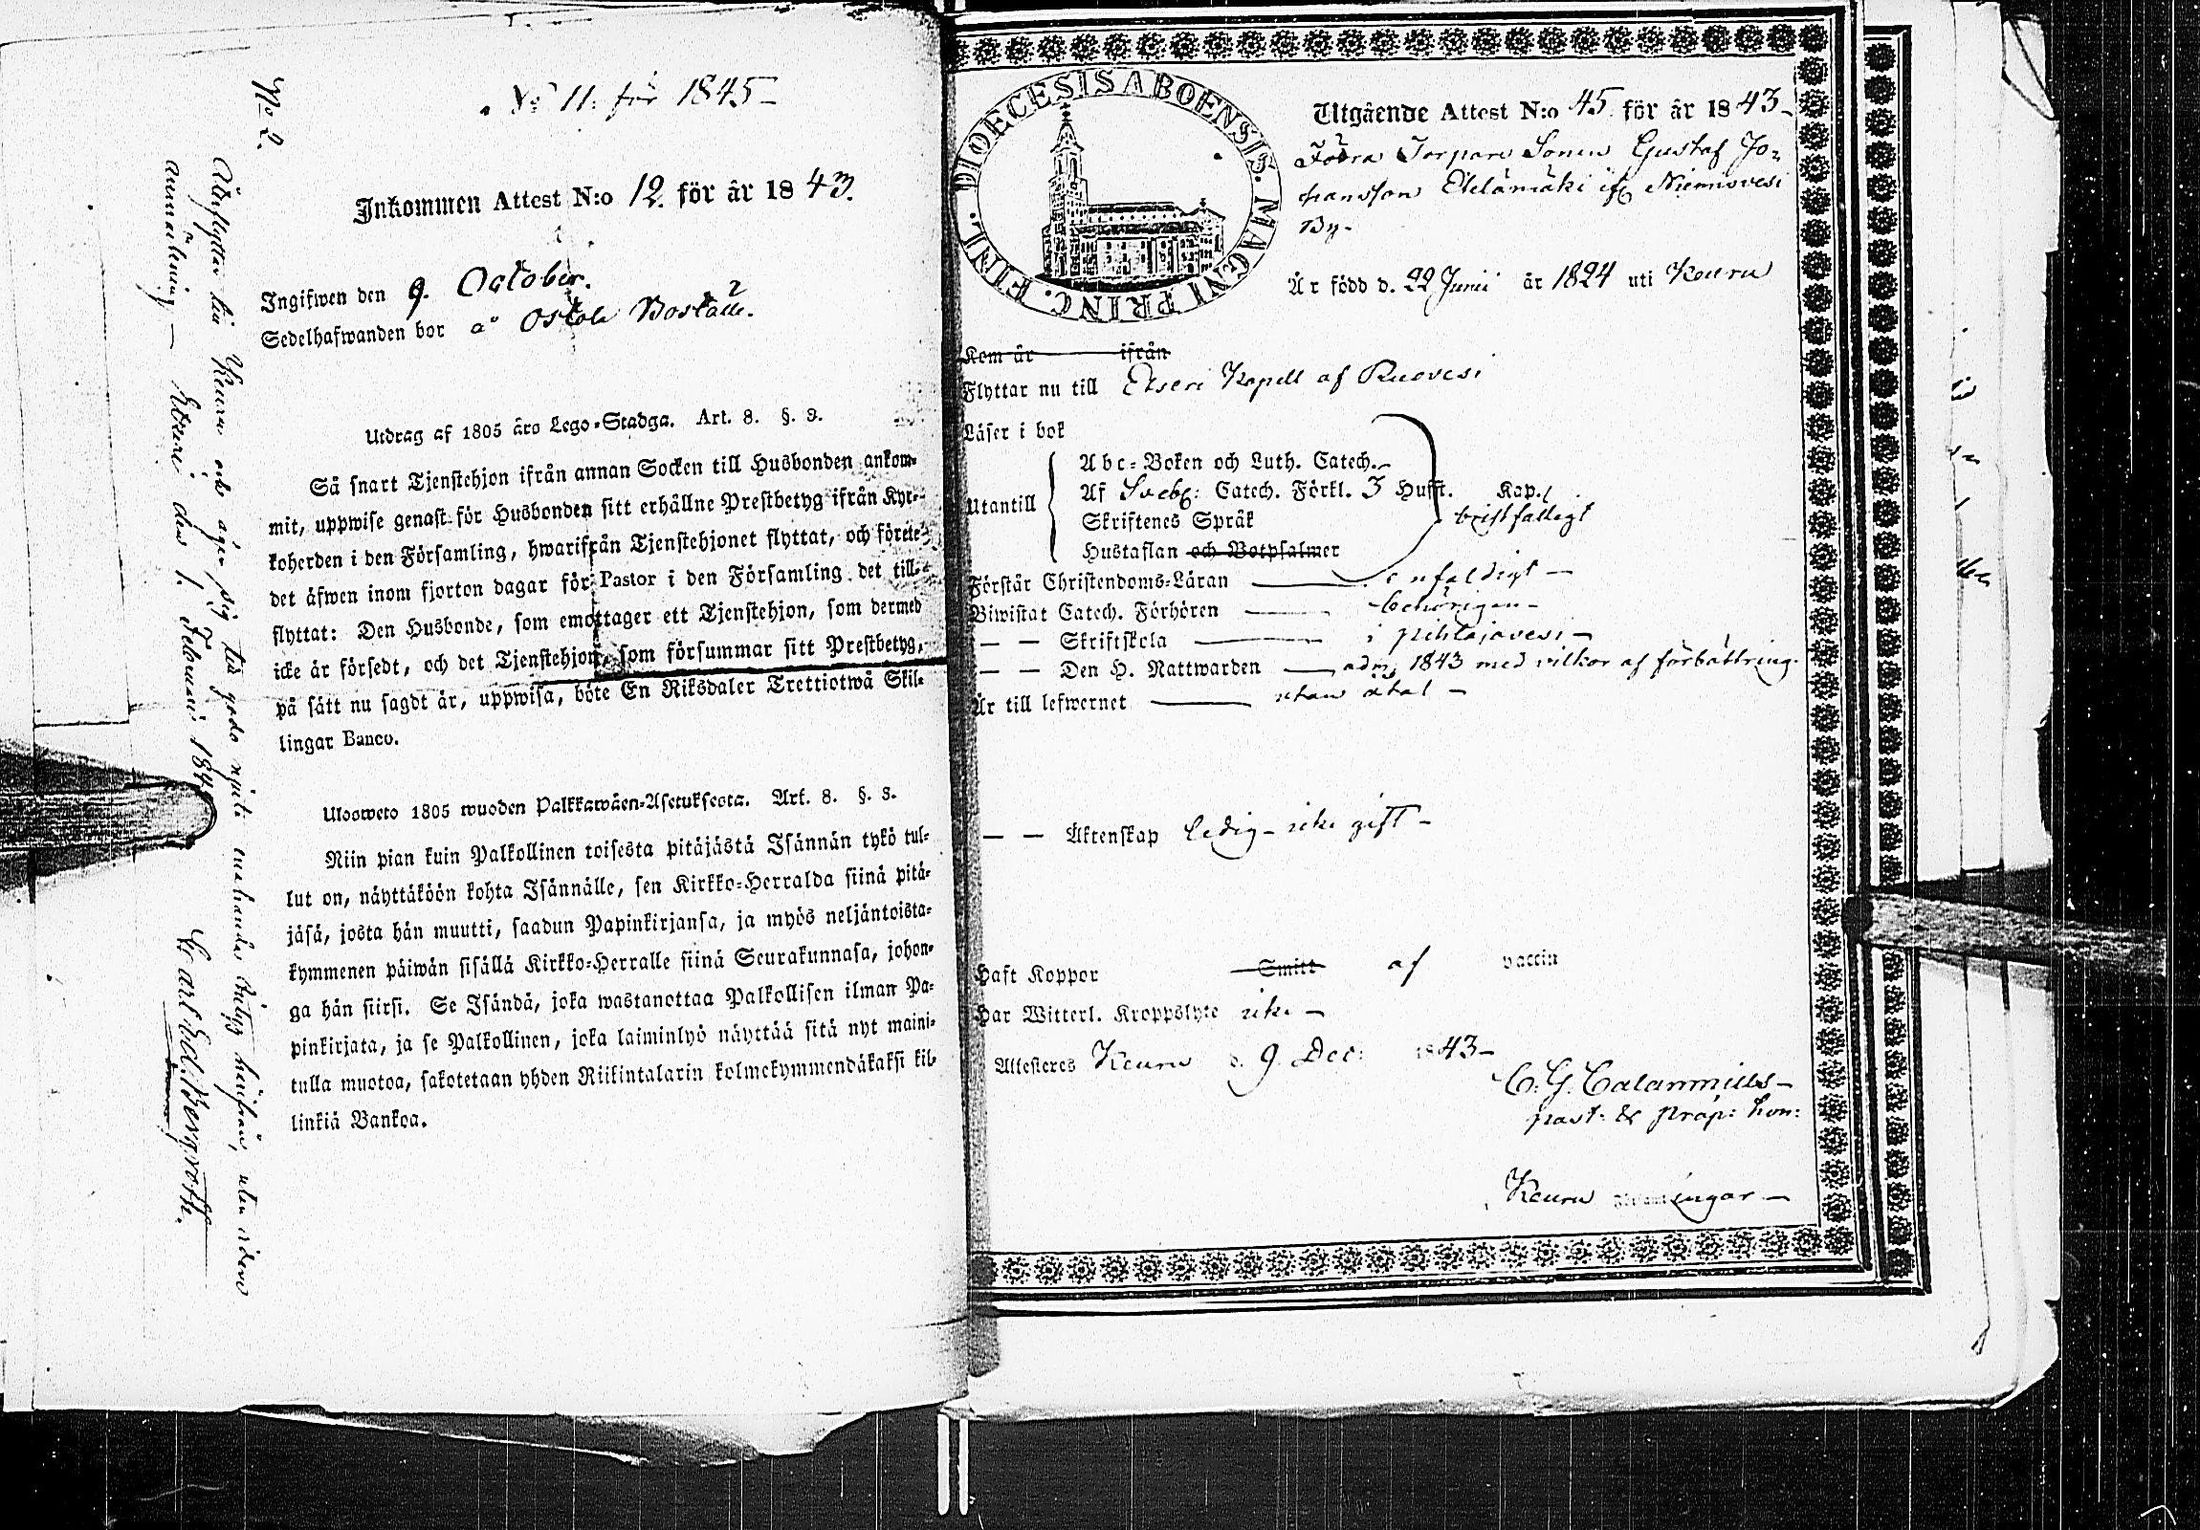 No 2.
Återflyttar till Keuru och äger sig till godo njuta enahanda betyg härifrån, utan vidare
anmärkning — Etseri den 1. Februarii 184
Carl Edv. Bergroth.
No 11: för 1845 –
Inkommen Attest N:o 12. för år 1843.
Ingifwen den 9. October.
Sedelhafwanden bor å Ostola Boställe.
Utdrag af 1805 års Lego-Stadga. Art. 8. §. 3.
Så snart Tjenstehjon ifrån annan Socken till Husbonden ankom-
mit, uppwise genast för Husbonden sitt erhållne Prestbetyg ifrån Kyr-
koherden i den Församling, hwarifrån Tjenstehjonet flyttat, och förete
det äfwen inom fjorton dagar för Pastor i den Församling det till-
flyttat: Den Husbonde, som emottager ett Tjenstehjon, som dermed
icke är försedt, och det Tjenstehjon, som försummar sitt Prestbetyg,
på sätt nu sagdt är, uppwisa, böte En Riksdaler Trettiotwå Skil-
lingar Banco.
Ulosweto 1805 wuoden Palkkawäen-Asetuksesta. Art. 8. §. 3.
Niin pian kuin Palkollinen toisesta pitäjästä Isännän tykö tul-
lut on, näyttäköön kohta Isännälle, sen Kirkko-Herralda siinä pitä-
jäsä, josta hän muutti, saadun Papinkirjansa, ja myös neljäntoista-
kymmenen päiwän sisällä Kirkko-Herralle siinä Seurakunnasa, johon-
ga hän siirsi. Se Isändä, joka wastanottaa Palkollisen ilman Pa-
pinkirjata, ja se Palkollinen, joka laiminlyö näyttää sitä nyt maini-
tulla muotoa, sakotetaan yhden Riikintalarin kolmekymmendäkaksi kil-
linkiä Bankoa.
DIOECESIS ABOENSIS. MAGNI PRINC. FINL.
Utgående Attest N:o 45 för år 1843 –
Födra Torpare Sonen Gustaf Jo-
hansson Etelämäki ifr Niemisvesi
By –
Är född d. 22 Junii år 1824 uti Keuru
Kom år ifrån
Flyttar nu till Etseri Kapell af Ruovesi
Läser i bok
Utantill
Abc-Boken och Luth. Catech.
Af Svebg: Catech. Förkl. 3 Hufst. Kap.
bristfälligt
Skriftenes Språk
Hustaflan och Botpsalmer
Förstår Christendoms-Läran enfaldigt –
Biwistat Catech. Förhören behörigen –
— — Skriftskola i Pihlajavesi –
— — Den H. Nattwarden adm. 1843 med vilkor af förbättring.
Är till lefwernet utan åtal –
— — Äktenskap ledig – icke gift –
Haft Koppor Smitt af vaccin
Har Witterl. Kroppslyte icke –
Attesteres Keuru d. 9. Dec: 1843 –
C. G. Calamnius –
past: & præp: hon:
Keuru